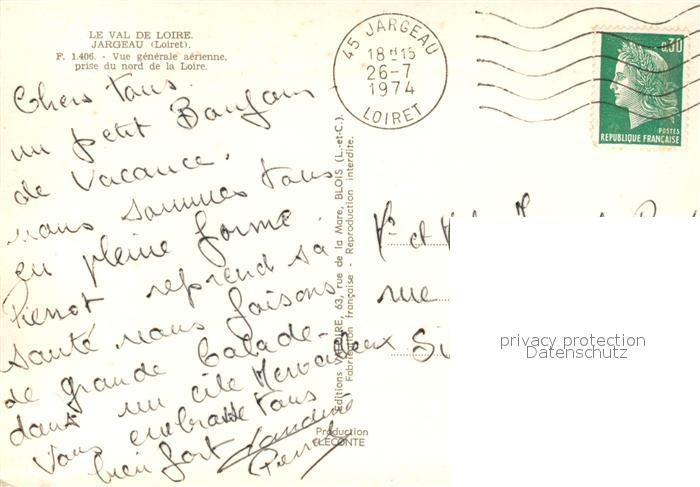 LE VAL DE LOIRE.
JARGEAU (Loiret).
F. 1.406. - Vue générale aérienne,
prise du nord de la Loire.
45 JARGEAU
18H15
26-7
1974
LOIRET
0,30
POSTES
REPUBLIQUE FRANÇAISE
Chers tous
un petit Bonjour
de vacance.
nous sommes tous
en pleine forme
Pierrot reprend sa
santé nous faisons
de grande balade
dans un site Merveilleux
Vous embrasse tous
bien fort
Pierrot
Editions VALOIRE, 63, rue de la Mare, BLOIS (L.-et-C.).
Fabrication française - Reproduction interdite.
Production
LECONTE
et
rue
privacy protection
Datenschutz